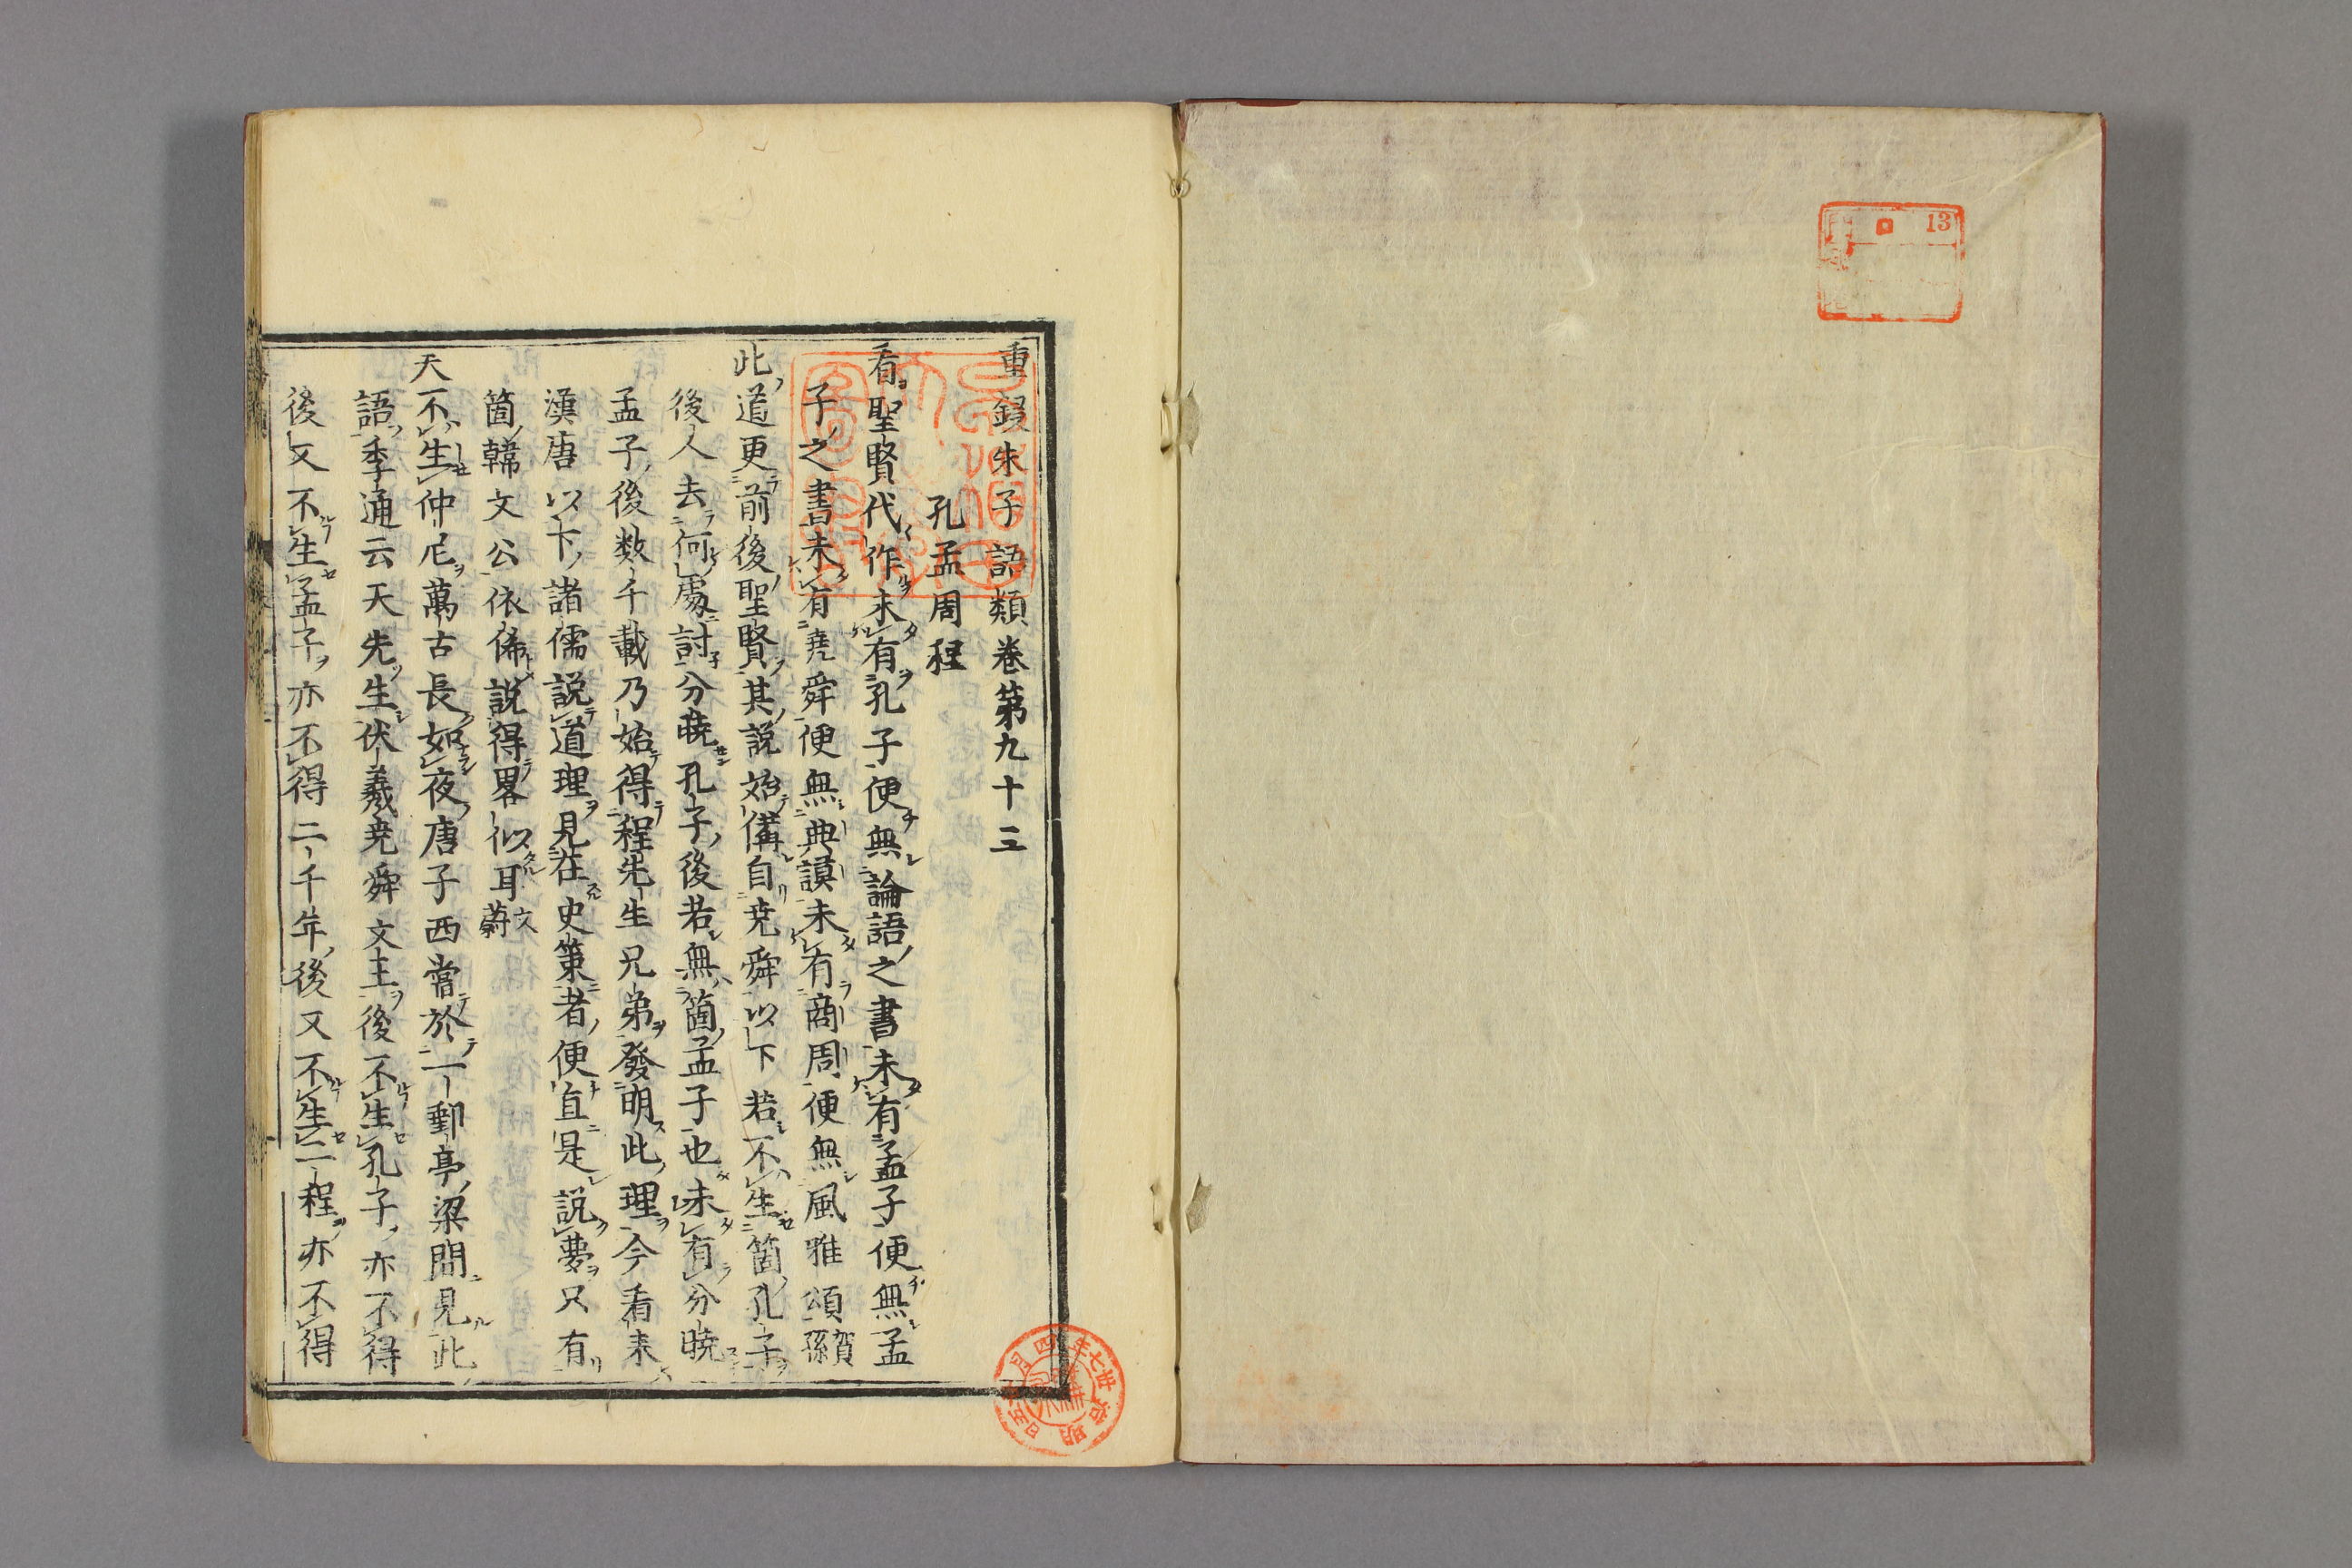 重鋟朱子語類卷第九十三
孔孟周程
看聖賢代作未有孔子便無論語之書未有孟子便無孟
子之書未有堯舜便無典謨未有商周便無風雅頌賀孫
此道更前後聖賢其說始備自堯舜以下若不生箇孔子
後人去何處討分曉孔子後若無箇孟子也未有分曉
孟子後数千載乃始得程先生兄弟發明此理今看来
漢唐以下諸儒說道理見在史策者便直是説夢只有
箇韓文公依俙說得畧似耳文蔚
天不生仲尼萬古長如夜唐子西嘗於一郵亭梁間見此
語季通云天先生伏羲尭舜文王後不生孔子亦不得
後又不生孟子亦不得二千年後又不生二程亦不得
13